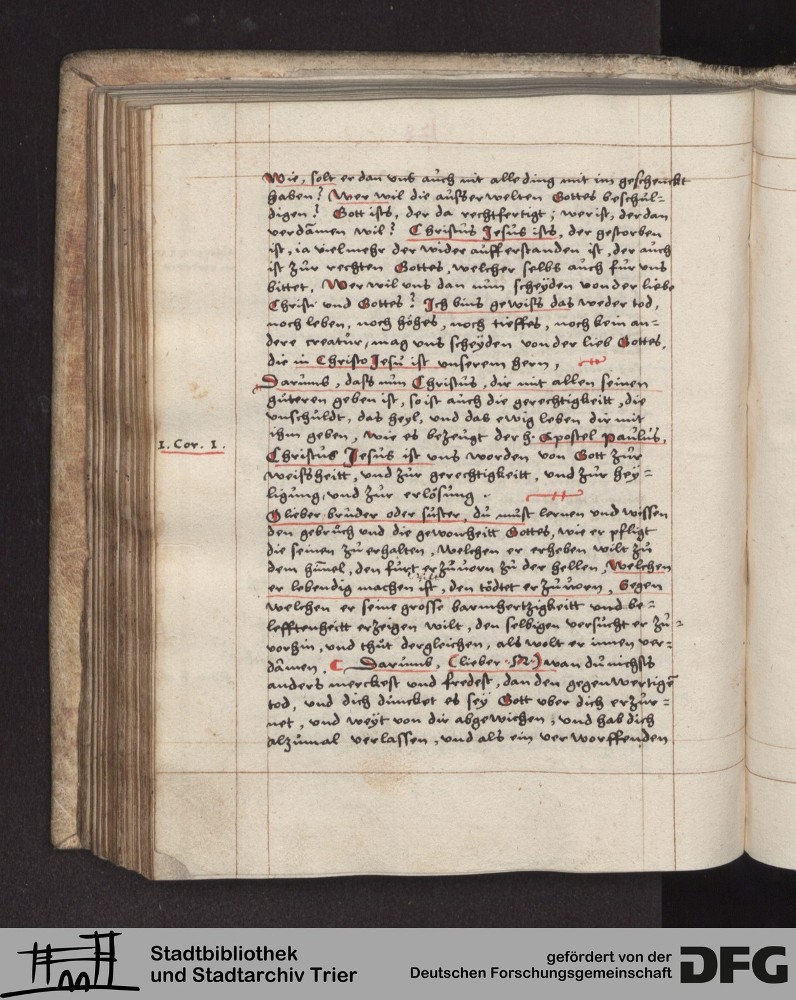 Wie, solt er dan uns auch nit alle ding mit im geschenckt
haben? Wer wil die aufserwelten Gottes beschul=
digen? Gott ists, der da rechtfertigt; wer ist, der dan
verdãmen wil? Christus Jesus ists, der gestorben
ist, ia vielmehr der wider aufferstanden ist, der auch
ist zur rechten Gottes, welcher selbs auch fur uns
bittet, Wer wil uns dan nun scheyden von der liebe
Christi und Gottes? Ich bins gewiss das weder tod,
noch leben, noch höhes, noch tieffes, noch kein an=
dere creatur, mag uns scheyden von der lieb Gottes,
die in Christo Jesu ist unserem hern,
Darumb, dass nun Christus, dir mit allen seinen
guteren geben ist, so ist auch die gerechtigkeitt, die
unschuldt, das heyl, und das ewig leben dir mit
ihm geben, wie es bezeugt der h. Apostel Paulus,
1. Cor. 1.
Christus Jesus ist uns worden von Gott zur
weissheitt, und zur gerechtigkeitt, und zur hey=
ligung, und zur erlösung.
O lieber bruder oder suster, du must lernen und wissen
den gebruch und die gewonheitt Gottes, wie er pfligt
die seinen zu erhalten, welchen er erheben wilt zu
dem him̃el, den furt er zuvorn zu der hellen, Welchen
er lebendig machen ist, den tödtet er zuvorn, Gegen
welchen er seine grosse barmhertzigkeitt und be=
lefftenheitt erzeigen wilt, den selbigen versucht er zu=
vorhin, und thut dergleichen, als wolt er innen ver=
dãmen. C Darumb, (lieber .N.) wan du nichsts
anders merckest und fredest, dan den gegenwertigẽ
tod, und dich duncket es sey Gott uber dich erzur=
net, und weyt von dir abgewichen, und hab dich
alzumal verlassen, und als ein verworffenden
Stadtbibliothek
und Stadtarchiv Trier
gefördert von der
Deutschen Forschungsgemeinschaft
DFG